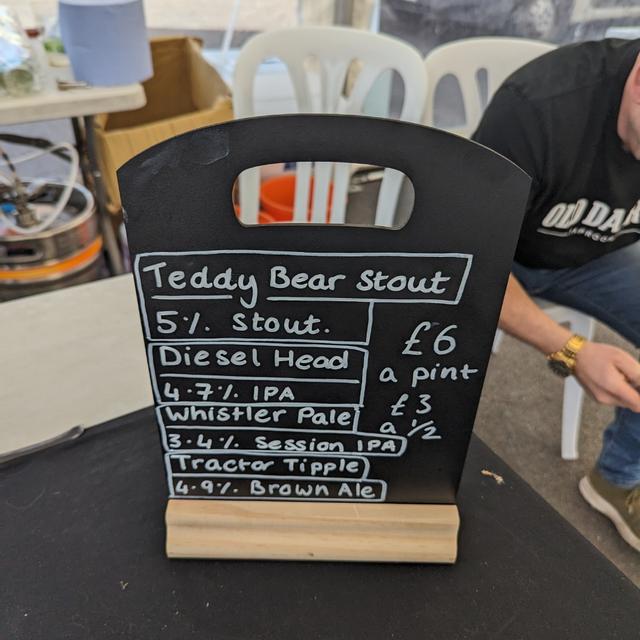 Teddy Bear Stout
5%. Stout.
Diesel Head
4.7%. IPA
Whistler Pale
3.4%. Session IPA
Tractor Tipple
4.9%. Brown Ale
£6
a pint
£3
a 1/2
OLD